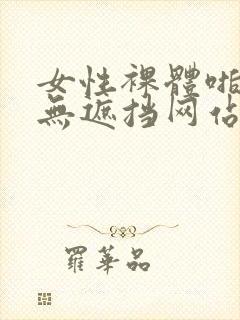 女性裸體啪
無遮挡网佔
羅華品